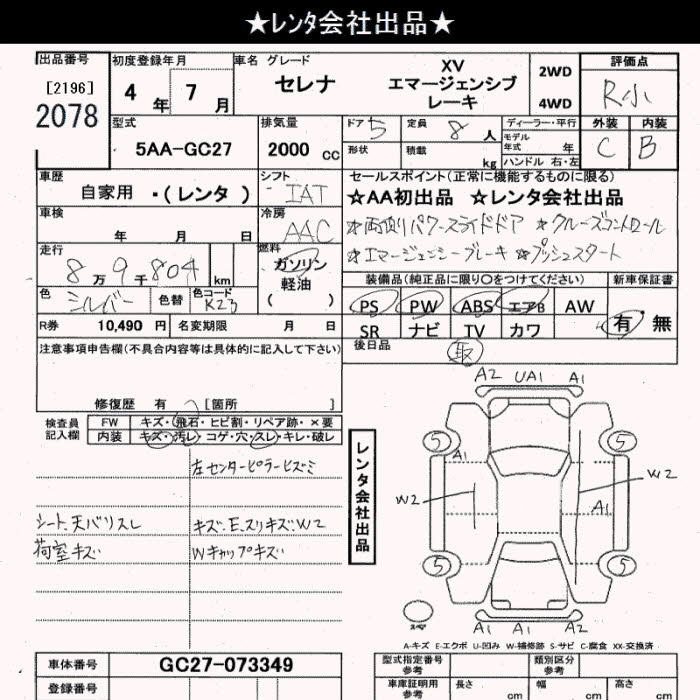 ★レンタ会社出品★
出品番号
[2196]
2078
初度登録年月
4年 7月
車名 グレード
セレナ
XV
エマージェンシブ
レーキ
2WD
4WD
評価点
R小
外装 内装
C B
型式
5AA-GC27
排気量
2000 cc
ドア 5
定員 8 人
形状
積載 kg
ディーラー・平行
モデル
年式 年
ハンドル 右・左
車歴
自家用 ・(レンタ )
シフト
IAT
車検
年 月 日
冷房
AAC
走行
8万9千804 km
燃料
ガソリン
軽油
( )
色 シルバー
色替
色コード
K23
R券 10,490 円
名変期限 月 日
セールスポイント(正常に機能するものに限る)
☆AA初出品 ☆レンタ会社出品
☆両側パワースライドドア ☆クルーズコントロール
☆エマージェンシーブレーキ ☆プッシュスタート
装備品(純正品に限り○をつけてください)
新車保証書
PS PW ABS エアB AW
SR ナビ TV カワ
有・無
後日品
取
注意事項申告欄(不具合内容等は具体的に記入して下さい)
修復歴 有 [箇所 ]
検査員
記入欄
FW キズ・飛石・ヒビ割・リペア跡・×要
内装 キズ・汚レ・コゲ・穴・スレ・キレ・破レ
左センターピラーヒズミ
シート、天バリスレ
キズ、E、スリキズ、W2
荷室キズ
Wキャップキズ
レンタ会社出品
A2 UA1 A1
5 5
A1
W2
W2
A1
5 5
A1 A1 A2
スペア
A-キズ E-エクボ U-凹み W-補修跡 S-サビ C-腐食 XX-交換済
車体番号
GC27-073349
登録番号
型式指定番号
参考
類別区分
参考
車庫証明用
参考
長さ cm
幅 cm
高さ cm